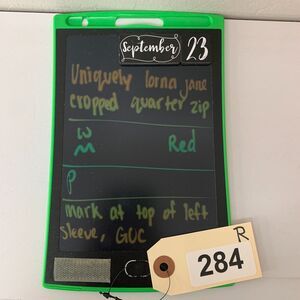 September 23
Uniquely lorna jane
cropped quarter zip
W
M Red
P
mark at top of left
sleeve, GUC
R
284